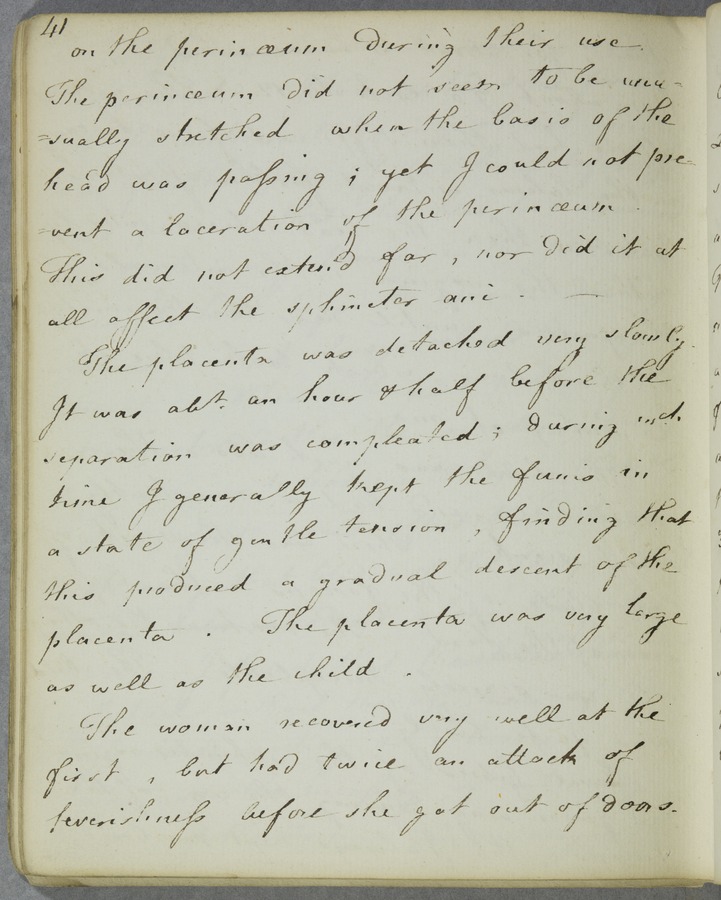 41
on the perinæum during their use.
The perinæum did not seem to be unu=
=sually stretched when the basis of the
head was paſsing ; yet I could not pre=
=vent a laceration of the perinæum.
This did not extend far, nor did it at
all affect the sphincter ani. —
The placenta was detached very slowly.
It was abt. an hour & half before the
separation was compleated ; during wch.
time I generally kept the funis in
a state of gentle tension, finding that
this produced a gradual descent of the
placenta. The placenta was very large
as well as the child.
The woman recovered very well at the
first, but had twice an attack of
feverishneſs before she got out of doors.